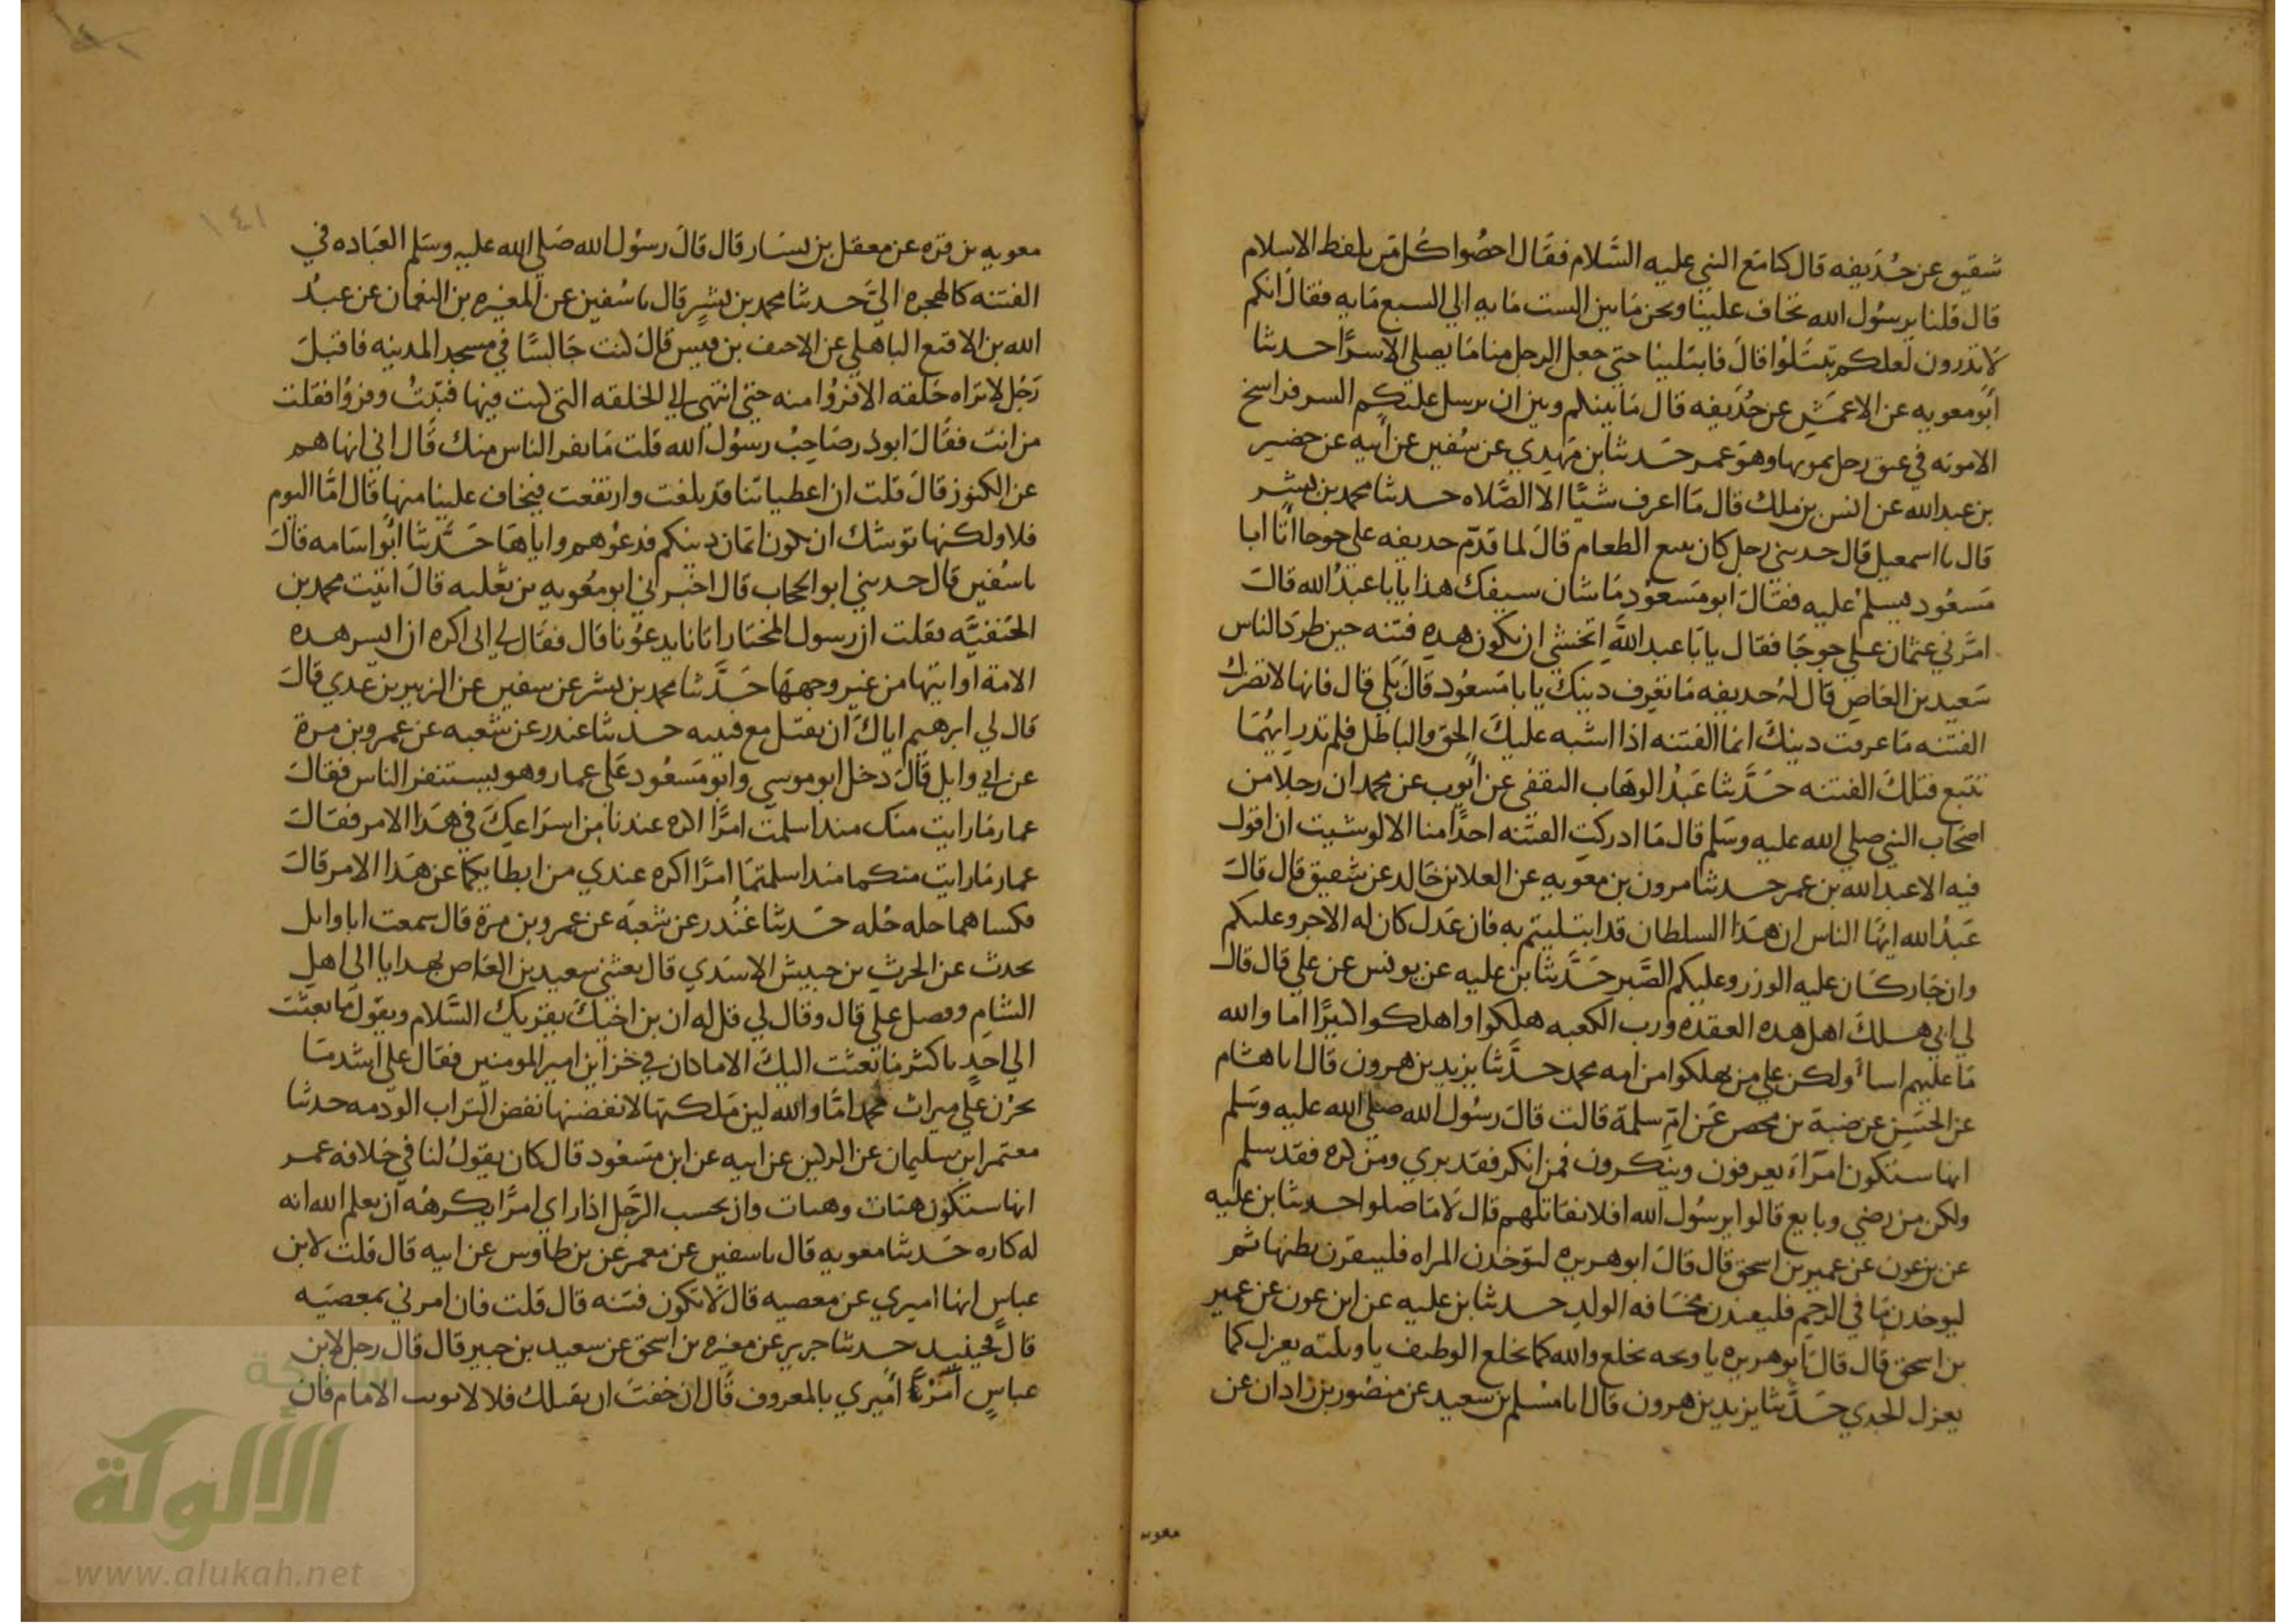 شقيق عن حذيفه قال كنا مع النبي عليه السلام فقال احصوا كل من يلفظ الاسلام
قال قلنا يرسول الله تخاف علينا ونحن ما بين الست مايه الي السبع مايه فقال انكم
لا تدرون لعلكم تبتلوا قال فابتلينا حتي جعل الرجل منا ما يصلي الا سرا حدثنا
ابو معويه عن الاعمش عن حذيفه قال ما بينكم وبين ان يرسل عليكم السر فراسخ
الا موته في عنق رجل يموتها وهو عمر حدثنا بن مهدي عن سفين عن ابيه عن حضير
بن عبد الله عن انس بن ملك قال ما اعرف شيا الا الصلاه حدثنا محمد بن بشر
قال نا اسمعيل قال حدثني رجل كان يبيع الطعام قال لما قدم حذيفه علي جوحا اتا ابا
مسعود يسلم عليه فقال ابو مسعود ما شان سيفك هذا يابا عبد الله قال
امرني عثمان علي جوحا فقال يابا عبد الله اتخشي ان تكون هذه فتنه حين طرد الناس
سعيد بن العاص قال له حذيفه ما تعرف دينك يابا مسعود قال بلي قال فانها لا تضرك
الفتنه ما عرفت دينك انما الفتنه اذا اشبه عليك الحق والباطل فلم تدر ايهما
تتبع فتلك الفتنه حدثنا عبد الوهاب الثقفي عن ايوب عن محمد ان رجلا من
اصحاب النبي صلي الله عليه وسلم قال ما ادركت الفتنه احدا منا الا لو شيت ان اقول
فيه الا عبد الله بن عمر حدثنا مرون بن معويه عن العلا بن خالد عن شقيق قال قال
عبد الله ايها الناس ان هذا السلطان قد ابتليتم به فان عدل كان له الاجر وعليكم
وان جار كان عليه الوزر وعليكم الصبر حدثنا بن عليه عن يونس عن علي قال قال
لي ابي هلك اهل هذه العقده ورب الكعبه هلكوا واهلكوا كثيرا اما والله
ما عليهم اسا ولكن علي من يهلكوا من امه محمد حدثنا يزيد بن هرون قال انا هشام
عن الحسن عن ضبة بن محصن عن ام سلمة قالت قال رسول الله صلي الله عليه وسلم
انها ستكون امراء يعرفون وينكرون فمن انكر فقد بري ومن كره فقد سلم
ولكن من رضي وبايع قالوا يرسول الله افلا نقاتلهم قال لا ما صلوا حدثنا بن عليه
عن بن عون عن عمير بن اسحق قال قال ابو هريره لتوخذن المراه فليبقرن بطنها ثم
ليوخذن ما في الرحم فلينبذن مخافه الولد حدثنا بن عليه عن ابن عون عن عمير
بن اسحق قال قال ابو هريره يا ويحه يخلع والله كما يخلع الوظيف يا ويلته يعزل كما
يعزل الجدي حدثنا يزيد بن هرون قال انا مسلم بن سعيد عن منصور بن زاذان عن
معويه
١٤١
معويه بن قره عن معقل بن يسار قال قال رسول الله صلي الله عليه وسلم العباده في
الفتنه كالهجره الي حدثنا محمد بن بشر قال نا سفين عن المغيره بن النعمان عن عبد
الله بن الاقنع الباهلي عن الاحنف بن قيس قال كنت جالسا في مسجد المدينه فاقبل
رجل لا تراه حلقه الا فروا منه حتي انتهي الي الحلقه التي كنت فيها فثبت وفروا فقلت
من انت فقال ابو ذر صاحب رسول الله قلت ما يفر الناس منك قال اني انهاهم
عن الكنوز قال قلت ان اعطياتنا قد بلغت وارتفعت فتخاف علينا منها قال اما اليوم
فلا ولكنها توشك ان تكون اثمان دينكم فدعوهم واياها حدثنا ابو اسامه قال
نا سفين قال حدثني ابو الجحاب قال اخبرني ابو معويه بن ثعلبه قال اتيت محمد بن
الحنفيه فقلت ان رسول المختار اتانا يدعونا قال فقال لي اني اكره ان ابسر هذه
الامة او اتيها من غير وجهها حدثنا محمد بن بشر عن سفين عن الزبير بن عدي قال
قال لي ابرهيم اياك ان يقتل مع فتنه حدثنا غندر عن شعبه عن عمرو بن مرة
عن ابي وايل قال دخل ابو موسي وابو مسعود علي عمار وهو يستنفر الناس فقال
عمار ما رايت منك منذ اسلمت امرا اكره عندنا من اسراعك في هذا الامر فقال
عمار ما رايت منكما منذ اسلمتما امرا اكره عندي من ابطايكما عن هذا الامر قال
فكساهما حله حله حدثنا غندر عن شعبه عن عمرو بن مرة قال سمعت ابا وايل
يحدث عن الحرث بن حبيش الاسدي قال بعثني سعيد بن العاص بهدايا الي اهل
الشام وفضل علي قال وقال لي قل له ان بن اخيك يقريك السلام ويقول ما بعثت
الي احد باكثر ما بعثت اليك الا ما كان في خزاين امير المومنين فقال علي اشد ما
يحزن علي ميراث محمد اما والله لين ملكتها لانفضنها نفض التراب الوذمه حدثنا
معتمر ابن سليمان عن الركين عن ابيه عن ابن مسعود قال كان يقول لنا في خلافه عمر
انها ستكون هنات وهنات وان بحسب الرجل اذا راي امرا يكرهه ان يعلم الله انه
له كاره حدثنا معويه قال نا سفين عن معمر عن بن طاوس عن ابيه قال قلت لابن
عباس انها اميري عن معصيه قال لا تكون فتنه قال قلت فان امرني بمعصيه
قال فحينيذ حدثنا جرير عن مغيره بن اسحق عن سعيد بن جبير قال قال رجل لابن
عباس امر اميري بالمعروف قال ان خفت ان يقتلك فلا لا تونب الامام فان
الألوكة
www.alukah.net